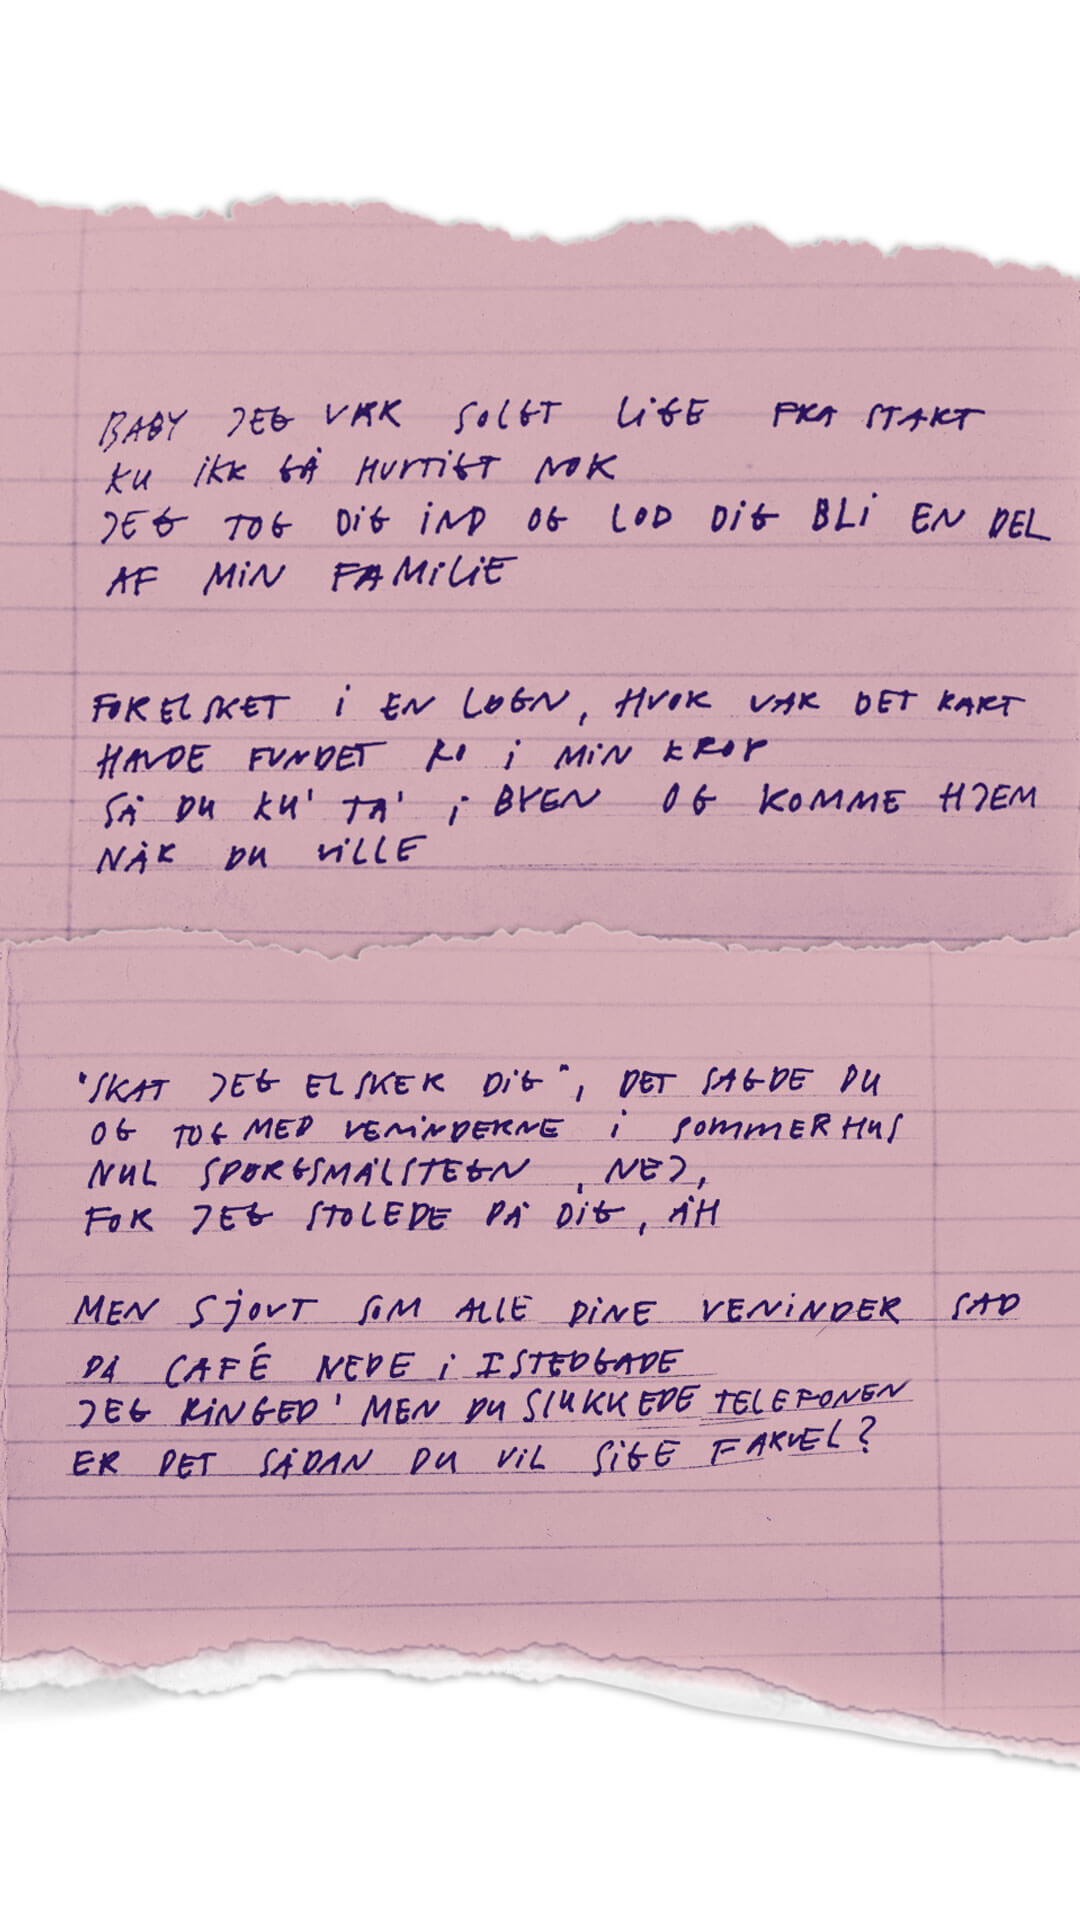 BABY JEG VAR SOLGT LIGE FRA START
KU IKK GÅ HURTIGT NOK
JEG TOG DIG IND OG LOD DIG BLI EN DEL
AF MIN FAMILIE
FORELSKET I EN LØGN, HVOR VAR DET RART
HAVDE FUNDET RO I MIN KROP
SÅ DU KU' TA' I BYEN OG KOMME HJEM
NÅR DU VILLE
"SKAT JEG ELSKER DIG", DET SAGDE DU
OG TOG MED VENINDERNE I SOMMERHUS
NUL SPØRGSMÅLSTEGN, NEJ,
FOR JEG STOLEDE PÅ DIG, ÅH
MEN SJOVT SOM ALLE DINE VENINDER SAD
PÅ CAFÉ NEDE I ISTEDGADE
JEG RINGED' MEN DU SLUKKEDE TELEFONEN
ER DET SÅDAN DU VIL SIGE FARVEL?